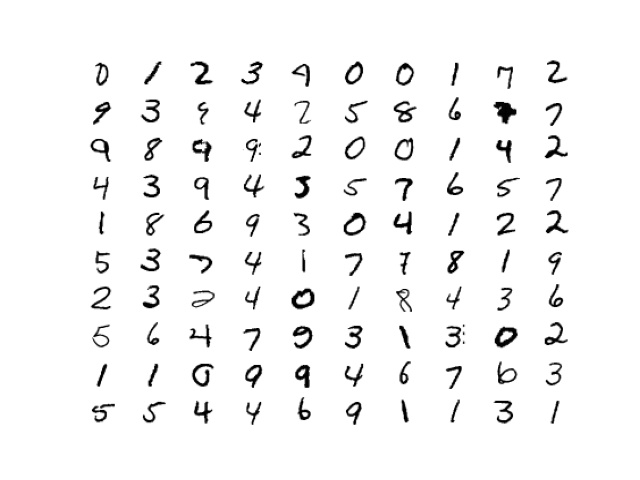 0 1 2 3 9 0 0 1 7 2
9 3 9 4 2 5 8 6 7 7
9 8 9 9 2 0 0 1 4 2
4 3 9 4 5 5 7 6 5 7
1 8 6 9 3 0 4 1 2 2
5 3 7 4 1 7 7 8 1 9
2 3 2 4 0 1 8 4 3 6
5 6 4 7 9 3 1 3 0 2
1 1 0 9 9 4 6 7 6 3
5 5 4 4 6 9 1 1 3 1